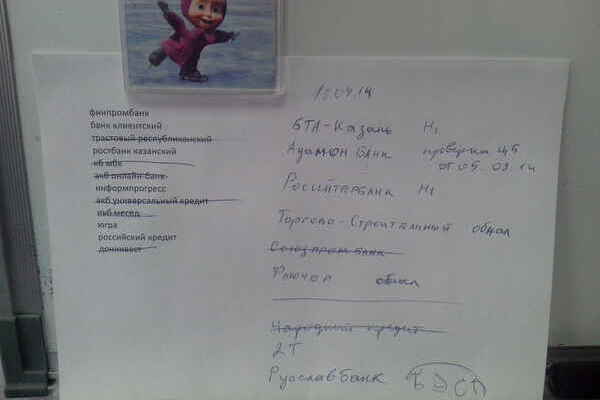 финпромбанк
банк клиентский
трастовый республиканский
ростбанк казанский
кб мбк
акб онлайн банк
информпрогресс
акб универсальный кредит
икб месед
югра
российский кредит
доninвест
.04.14
БТА-Казань Н1
Адамон Банк проверка ЦБ
от 05.03.14
Росинтербанк Н1
Торгово-Строительный обнал
Союзпром банк
Флючон обнал
Народный кредит
2Т
Руславбанк